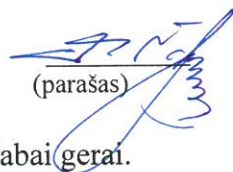 (parašas)
abai gerai.